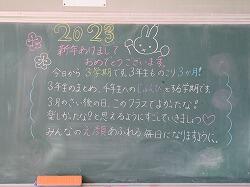 2023
新年あけまして
おめでとうございます。
今日から3学期です。3年生ものこり3か月!
3年生のまとめ、4年生へのじゅんびをする学期です。
3月のさい後の日、このクラスでよかったな♡
楽しかったな♡と思えるようにすごしていきましょう♡
みんなのえ顔あふれる毎日になりますように。